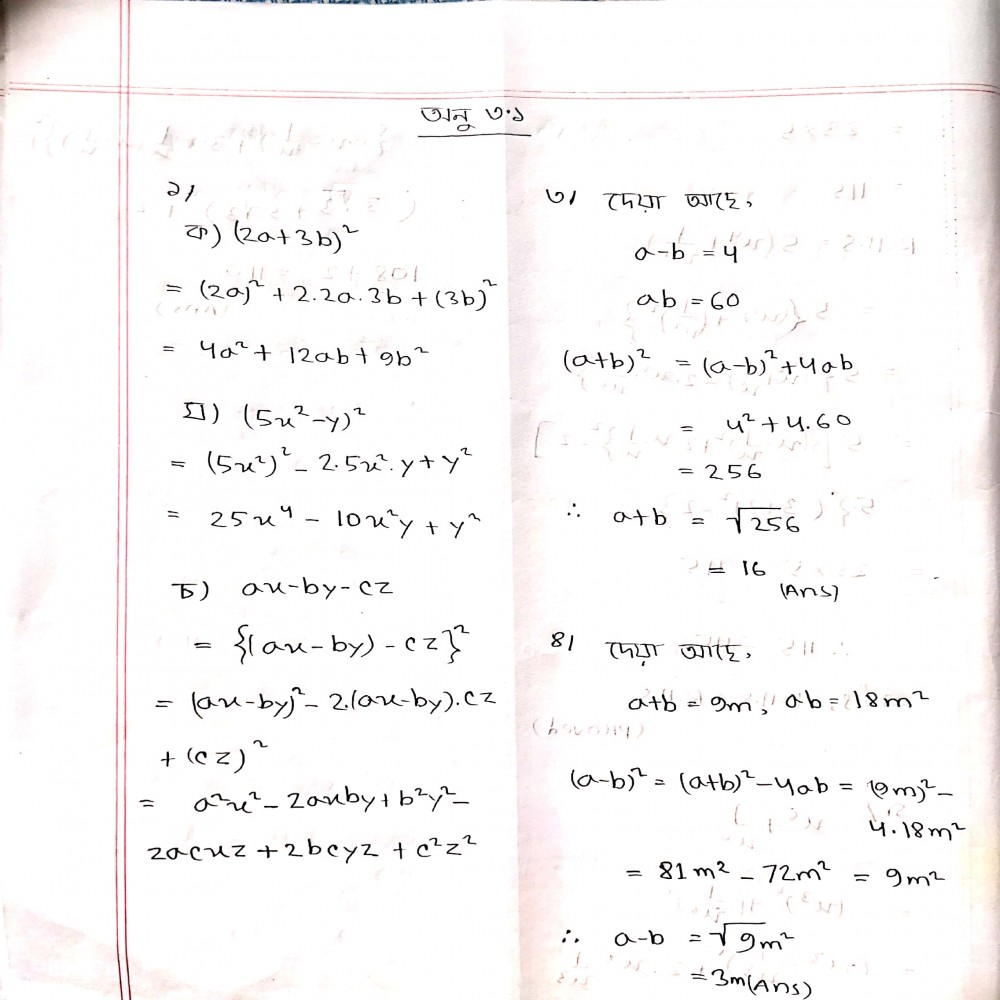 অনু ৩.১
১।
ক) (2a+3b)²
= (2a)² + 2.2a.3b + (3b)²
= 4a² + 12ab + 9b²
ঘ) (5x²-y)²
= (5x²)² - 2.5x².y + y²
= 25x⁴ - 10x²y + y²
চ) ax-by-cz
= {(ax-by) - cz}²
= (ax-by)² - 2.(ax-by).cz
+ (cz)²
= a²x² - 2axby + b²y² -
2acxz + 2bcyz + c²z²
৩। দেয়া আছে,
a-b = 4
ab = 60
(a+b)² = (a-b)² + 4ab
= 4² + 4.60
= 256
∴ a+b = √256
= 16
(Ans)
৪। দেয়া আছে,
a+b = 9m, ab = 18m²
(a-b)² = (a+b)² - 4ab = (9m)² -
4.18m²
= 81m² - 72m² = 9m²
∴ a-b = √9m²
= 3m (Ans)